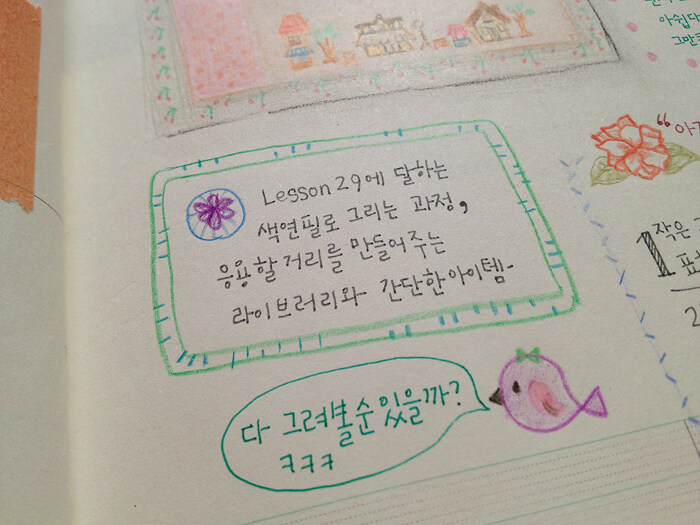 아쉽다
그만
Lesson 29에 달하는
색연필로 그리는 과정,
응용할거리를 만들어주는
라이브러리와 간단한아이템-
다 그려볼순있을까?
ㅋㅋㅋ
“아
1 작은
2